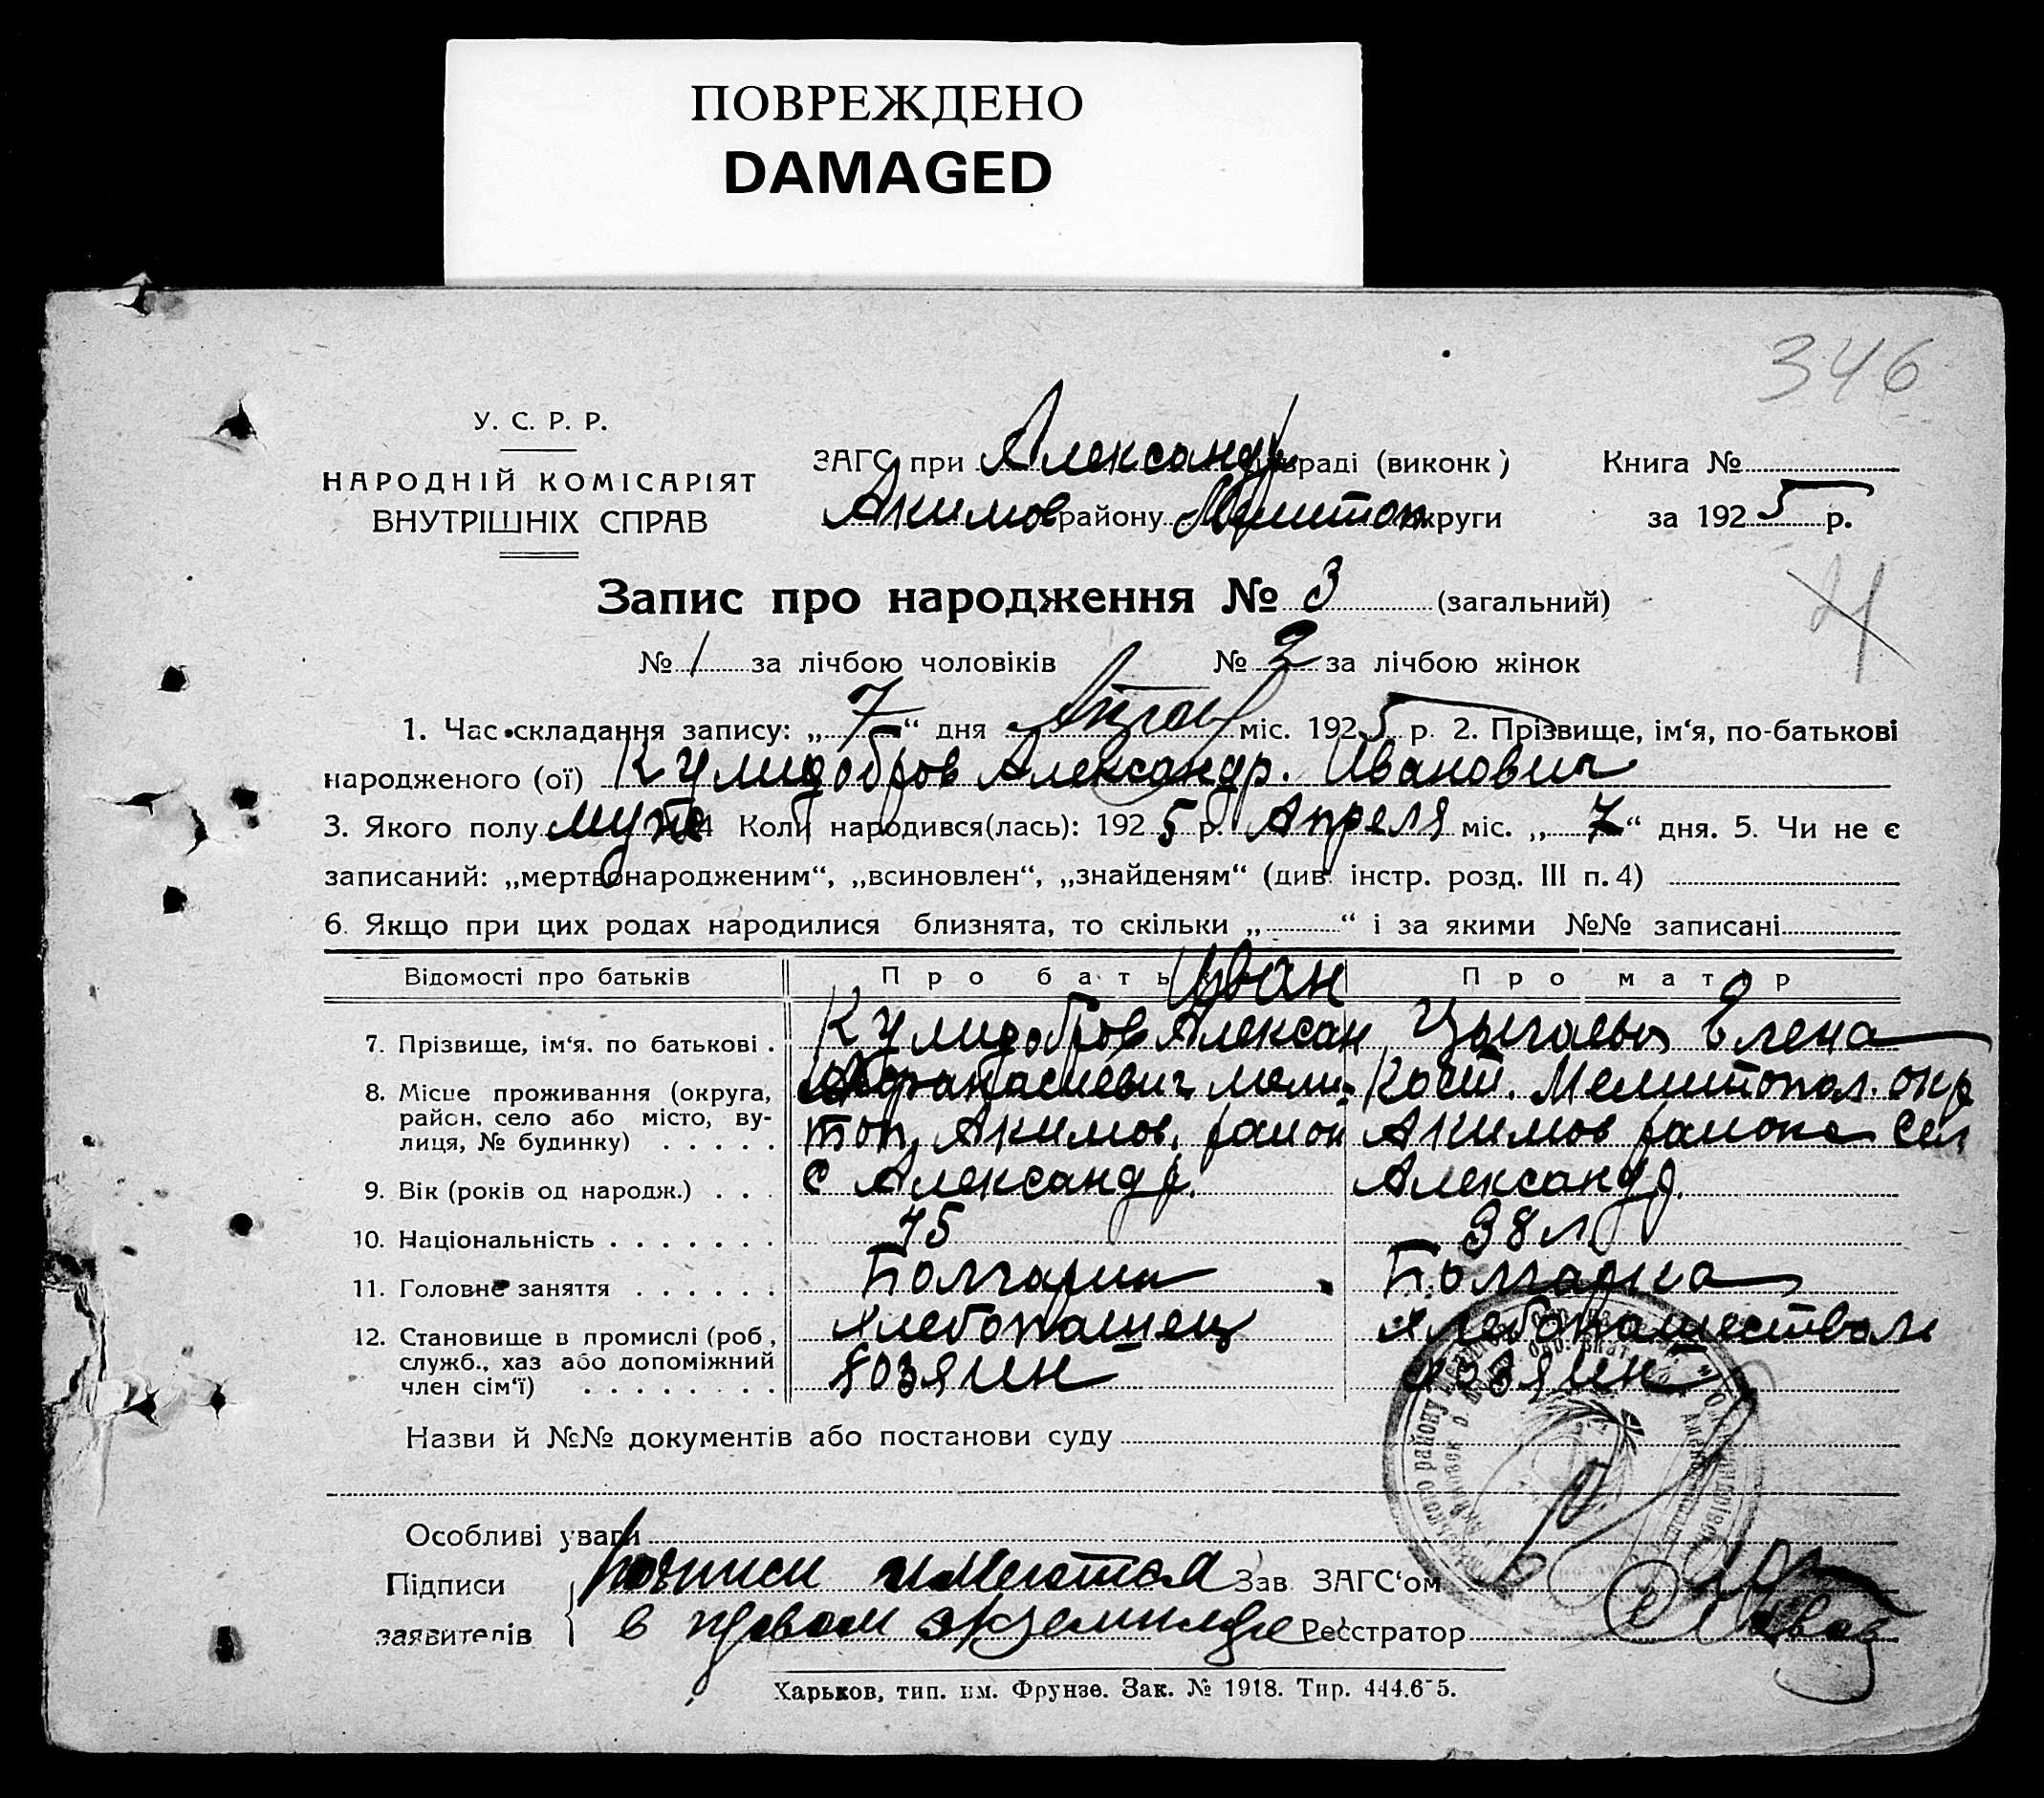 ПОВРЕЖДЕНО
DAMAGED
346
У. С. Р. Р.
НАРОДНІЙ КОМІСАРІЯТ
ВНУТРІШНІХ СПРАВ
ЗАГС при Александр раді (виконк)
Книга №
Акимов району Мелитоп округи
за 1925 р.
Запис про народження № 3 (загальний)
№ 1 за лічбою чоловіків № 2 за лічбою жінок
1. Час складання запису: „7“ дня міс. 1925 р. 2. Прізвище, ім‘я, по-батькові
народженого (ої) Кулидобров Александр. Иванович
3. Якого полу муж 4 Коли народився(лась): 1925 р. Апреля міс. „7“ дня. 5. Чи не є
записаний: „мертвонародженим“, „всиновлен“, „знайденям“ (див. інстр. розд. III п. 4)
6. Якщо при цих родах народилися близнята, то скільки „ “ і за якими №№ записані
Відомості про батьків Про батька Про матір
Иван
7. Прізвище, ім‘я, по батькові . Кулидобров Алексан Елена
8. Місце проживання (округа, район, село або місто, вулиця, № будинку) Афанасиевич Мели- Кост. Мелитопол. окр
топ, Акимов. район Акимов района сел
9. Вік (років од народж.) . . . с Александр. Александр.
10. Національність . . . . . . . 45 38 л
11. Головне заняття . . . . . . Болгарин Болгарка
12. Становище в промислі (роб, служб., хаз або допоміжний член сім‘ї) . . . . . . . . Хлебопашец
хозяин хозяин
Назви й №№ документів або постанови суду
Особливі уваги
Підписи заявителів
Подписи имеются Зав ЗАГС‘ом
в первом экземпляре Реєстратор
Харьков, тип. им. Фрунзе. Зак. № 1918. Тир. 444.6-5.